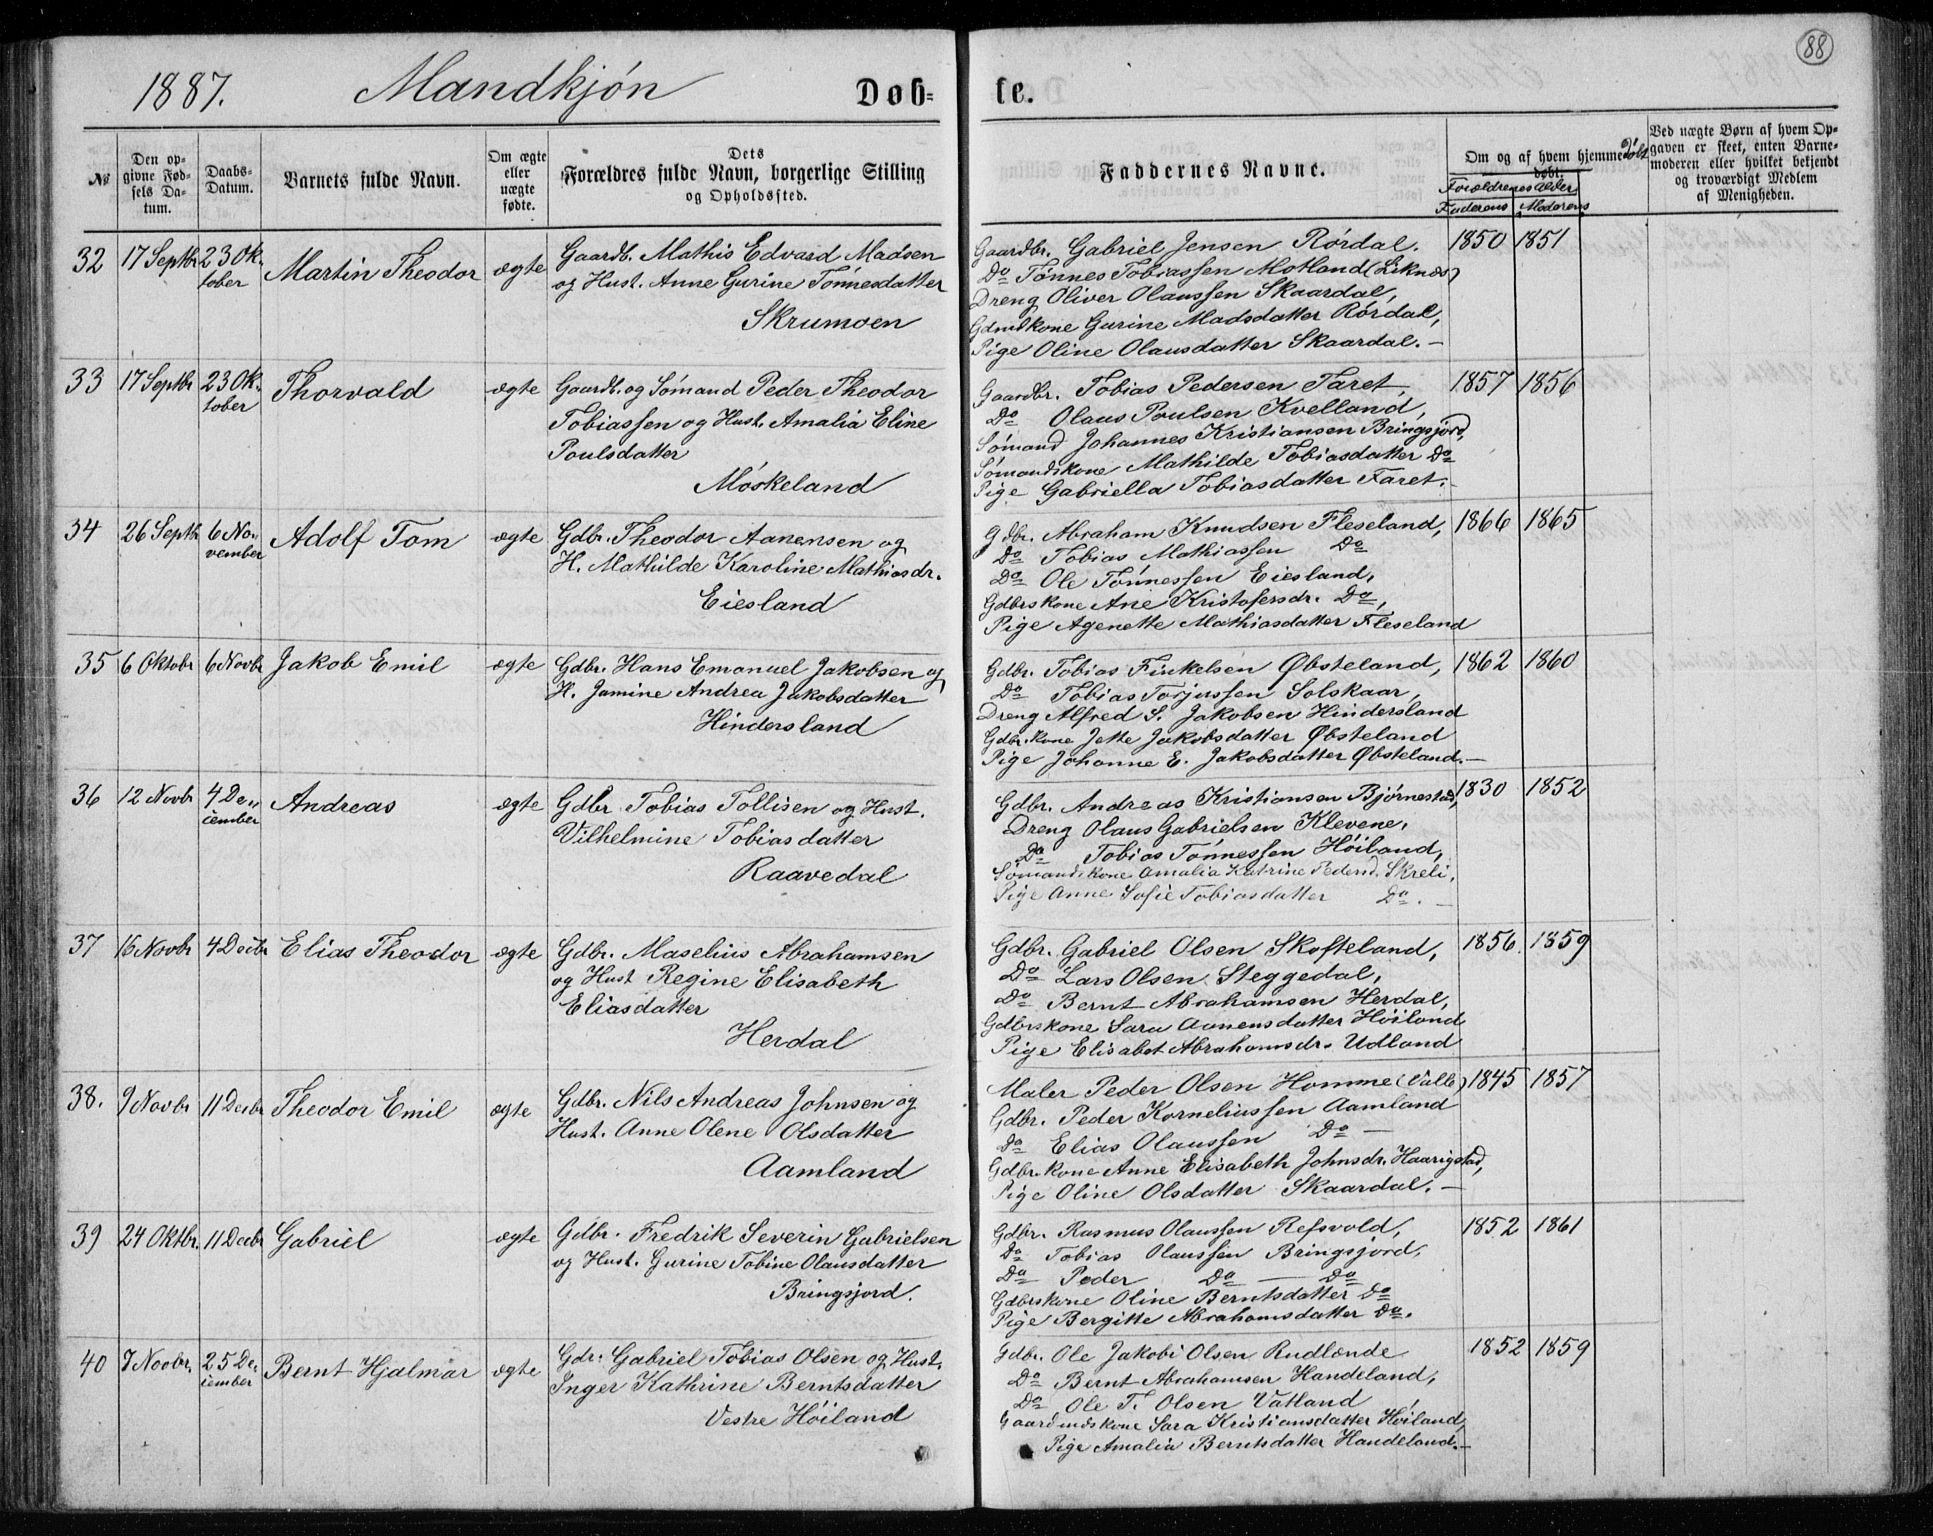 88
1887. Mandkjón Døb- te.
№
Den op-
givne Fød-
sels Da-
tum.
Daabs-
Datum.
Barnets fulde Navn.
Om ægte
eller
uægte
fødte.
Dets
Forældres fulde Navn, borgerlige Stilling
og Opholdssted.
Faddernes Navne.
Om og af hvem hjemme-
døbt.
Forældrenes Alder
Faderens Moderens
Ved uægte Børn af hvem Op-
gaven er skeet, enten Barne-
moderen eller hvilket bekjendt
og troværdigt Medlem
af Menigheden.
32 17 Septbr 23 Ok-
tober
Martin Theodor
ægte
Gaardb. Mathis Edvard Madsen
og Hust. Anne Gurine Tónnesdatter
Skrumoen
Gaardbr. Gabriel Jensen Rórdal.
Do Tónnes Tobiassen Motland (Liknes)
Dreng Oliver Olaussen Skaardal,
Gdmdkone Gurine Madsdatter Rórdal,
Pige Oline Olausdatter Skaardal. –
1850 1851
33 17 Septbr 23 Ok-
tober
Thorvald
ægte
Gaardb. og Sómand Peder Theodor
Tobiassen og Hust. Amalia Eline
Poulsdatter
Móskeland
Gaardbr. Tobias Pedersen Faret,
Do Olaus Poulsen Kvelland,
Sómand Johannes Kristiansen Bringsjord,
Sómandskone Mathilde Tobiasdatter Do
Pige Gabriella Tobiasdatter Faret. –
1857 1856
34 26 Septbr 6 No-
vember
Adolf Tom
ægte
Gdbr. Theodor Aanensen og
H. Mathilde Karoline Mathiasdr.
Eiesland
Gdbr. Abraham Knudsen Fleseland,
Do Tobias Mathiassen Do
Do Ole Tónnessen Eiesland,
Gdbrskone Ane Kristofersdr. Do,
Pige Agenette Mathiasdatter Fleseland
1866 1865
35 6 Oktobr 6 Novbr Jakob Emil
ægte
Gdbr. Hans Emanuel Jakobsen og
H. Jamine Andrea Jakobsdatter
Hindersland
Gdbr. Tobias Finkelsen Øbsteland,
Do Tobias Torjussen Solskaar,
Dreng Alfred S. Jakobsen Hindersland
Gdbr.kone Jette Jakobsdatter Øbsteland
Pige Johanne E. Jakobsdatter Øbsteland. –
1862 1860
36 12 Novbr 4 De-
cember
Andreas
ægte
Gdbr Tobias Tollisen og Hust.
Vilhelmine Tobiasdatter
Raavedal
Gdbr. Andreas Kristiansen Bjórnestad,
Dreng Olaus Gabrielsen Klevene,
Do Tobias Tónnessen Hóiland,
Sómandskone Amalia Katrine Pedersd. Skreli,
Pige Anne Sofie Tobiasdatter Do. –
1830 1852
37 16 Novbr 4 Decbr Elias Theodor
ægte
Gdbr. Maselius Abrahamsen
og Hust Regine Elisabeth
Eliasdatter
Herdal
Gdbr. Gabriel Olsen Skofteland,
Do Lars Olsen Steggedal,
Do Bernt Abrahamsen Herdal,
Gdbrskone Sara Aanensdatter Hóiland
Pige Elisabet Abrahamsdr. Udland
1856. 1859
38. 9 Novbr 11 Decbr Theodor Emil
ægte
Gdbr. Nils Andreas Johnsen og
Hust. Anne Olene Olsdatter
Aamland
Maler Peder Olsen Homme (Valle)
Gdbr. Peder Korneliussen Aamland
Do Elias Olaussen Do –
Gdbr.kone Anne Elisabeth Johnsdr. Haarigstad,
Pige Oline Olsdatter Skaardal. –
1845 1857
39 24 Oktbr. 11 Decbr Gabriel
ægte
Gdbr. Fredrik Severin Gabrielsen
og Hust. Gurine Tobine Olausdatter
Bringsjord.
Gdbr. Rasmus Olaussen Refsvold,
Do Tobias Olaussen Bringsjord,
Do Peder Do – Do
Gdbrskone Oline Berntsdatter Do
Pige Bergitte Abrahamsdatter Do.
1852 1861
40 7 Novbr. 25 De-
cember
Bernt Hjalmar
ægte
Gdr. Gabriel Tobias Olsen og Hust.
Inger Kathrine Berntsdatter
Vestre Hóiland
Gdbr. Ole Jakobi Olsen Rudlænde
Do Bernt Abrahamsen Handeland,
Do Ole T. Olsen Vatland,
Gaardmdskone Sara Kristiansdatter Hóiland,
Pige Amalia Berntsdatter Handeland. –
1852 1859